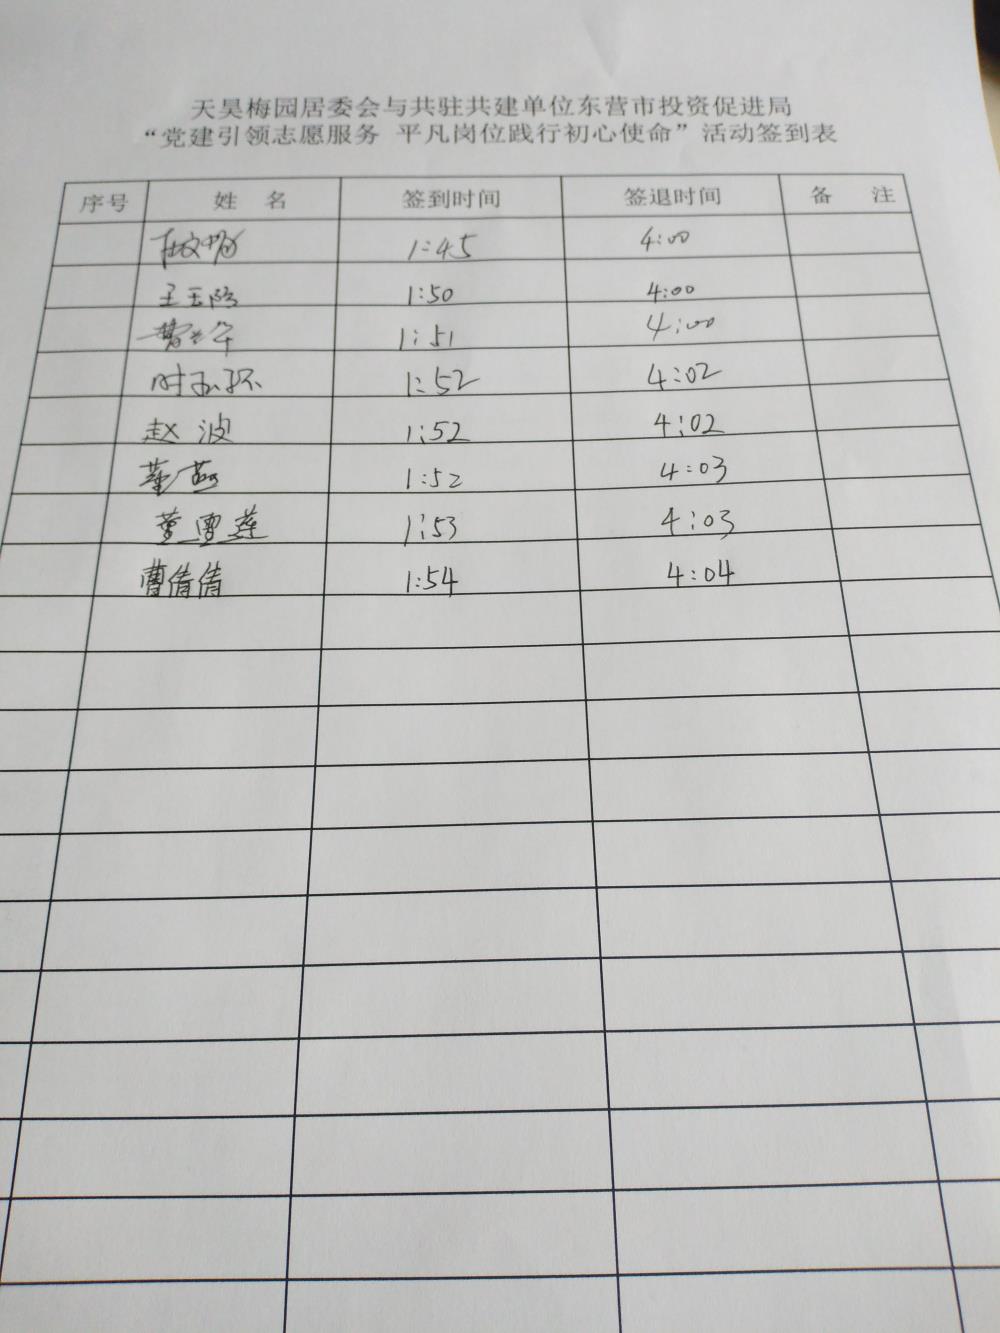 天昊梅园居委会与共驻共建单位东营市投资促进局
“党建引领志愿服务 平凡岗位践行初心使命”活动签到表
序号 姓 名 签到时间 签退时间 备 注
1:45 4:00
1:50 4:00
1:51 4:00
1:52 4:02
赵波 1:52 4:02
董燕 1:52 4:03
董雪莲 1:53 4:03
曹倩倩 1:54 4:04